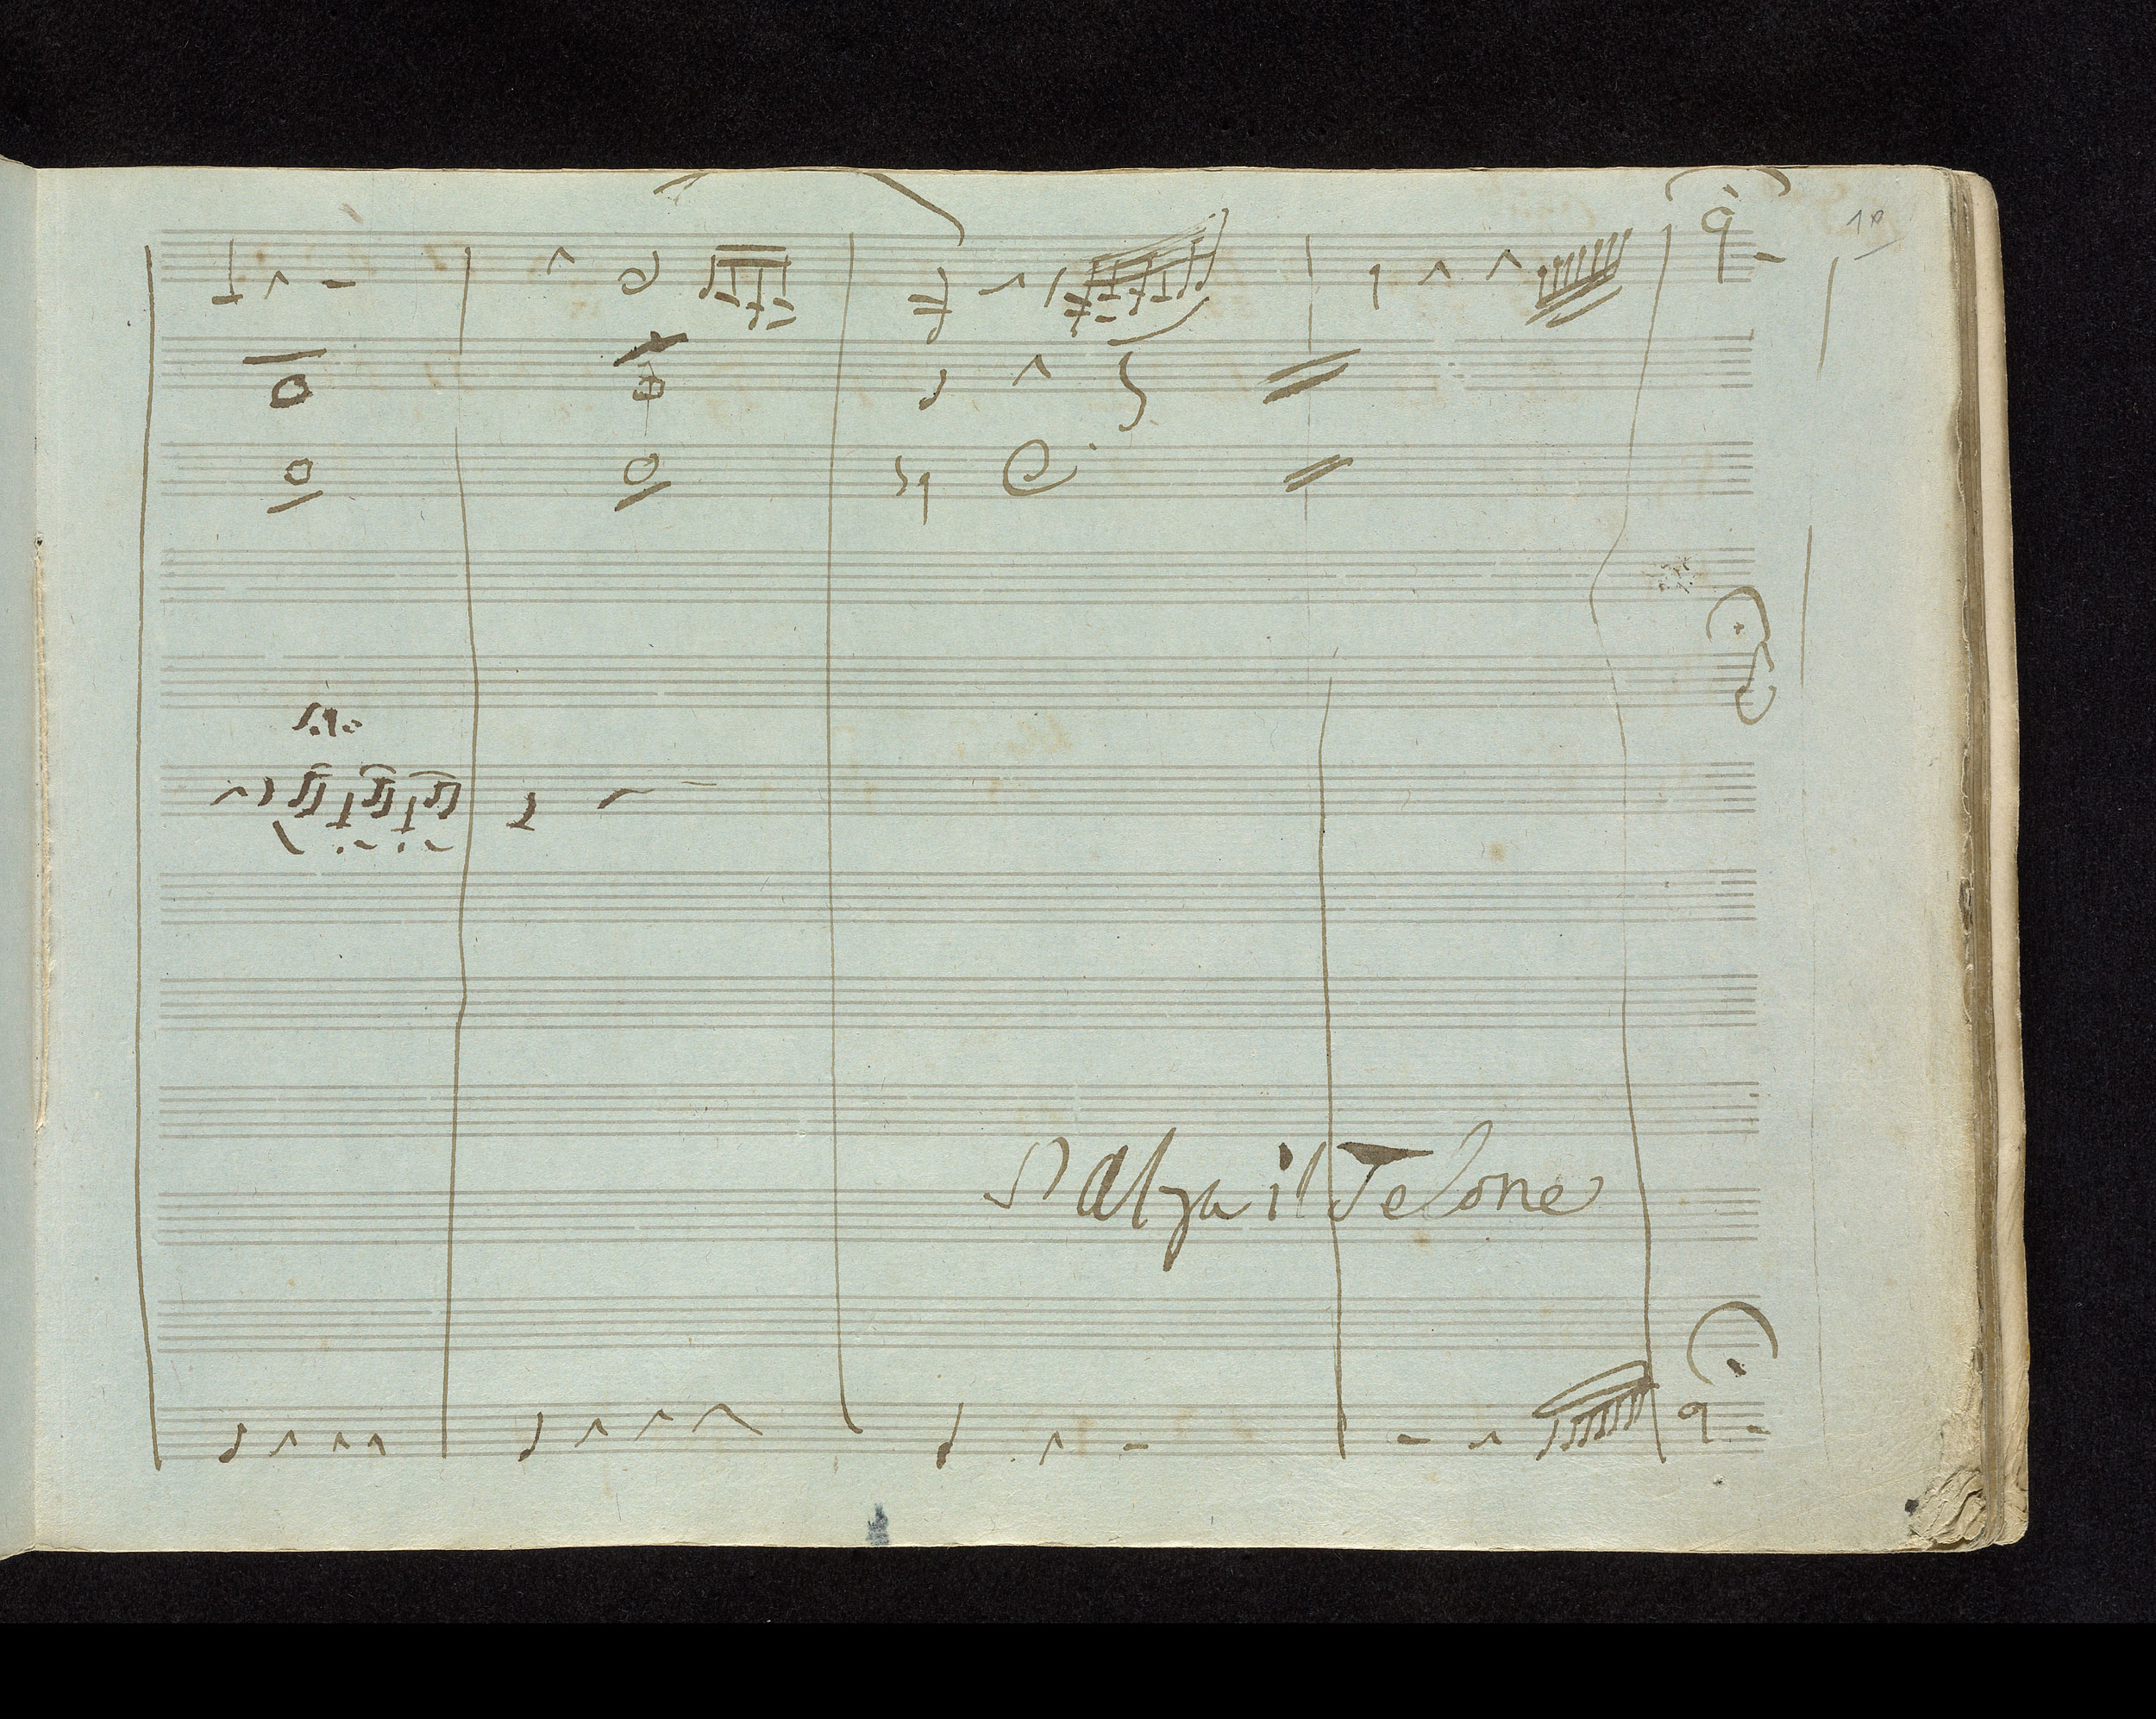 10
Solo
S'Alza il Telone